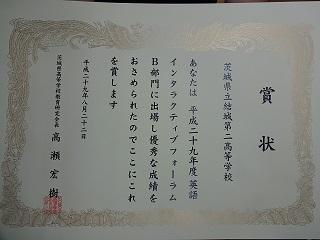 賞状
茨城県立結城第二高等学校
あなたは 平成二十九年度 英語
インタラクティブフォーラム
B部門に出場し優秀な成績を
おさめられたのでここにこれ
を賞します
平成二十九年八月二十二日
茨城県高等学校教育研究会長 高瀬宏樹